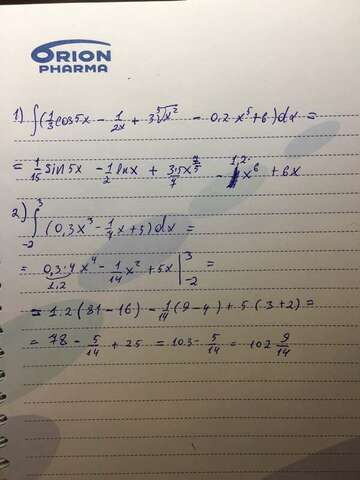 ORION
PHARMA
1) ∫(1/3 cos5x - 1/2x + 3⁵√x² - 0,2 x⁵ + 6)dx =
= 1/15 sin 5x - 1/2 lnx + 3·5x^(7/5)/7 - 1,2· x⁶ + 6x
2) ∫₋₂³ (0,3x³ - 1/7 x + 5)dx =
= 0,3·4x⁴ - 1/14 x² + 5x |₋₂³ =
1,2
= 1.2(81-16) - 1/14 (9-4) + 5(3+2) =
= 78 - 5/14 + 25 = 103 - 5/14 = 102 9/14